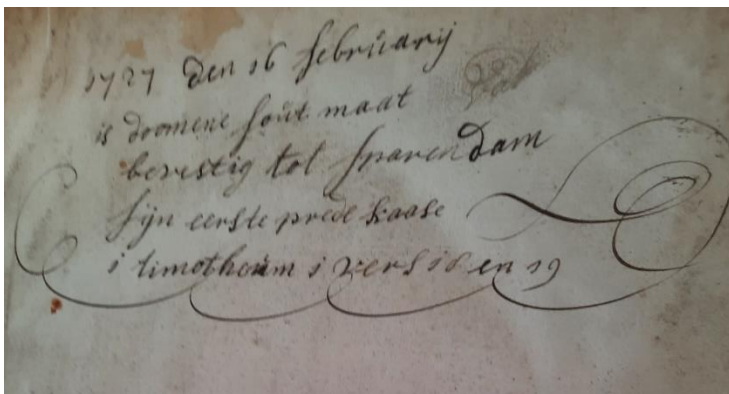 1727 den 16 februarij
is doomene sout maat
bevestig tot sparendam
sijn eerste prede kaase
i timotheum i vers 18 en 19